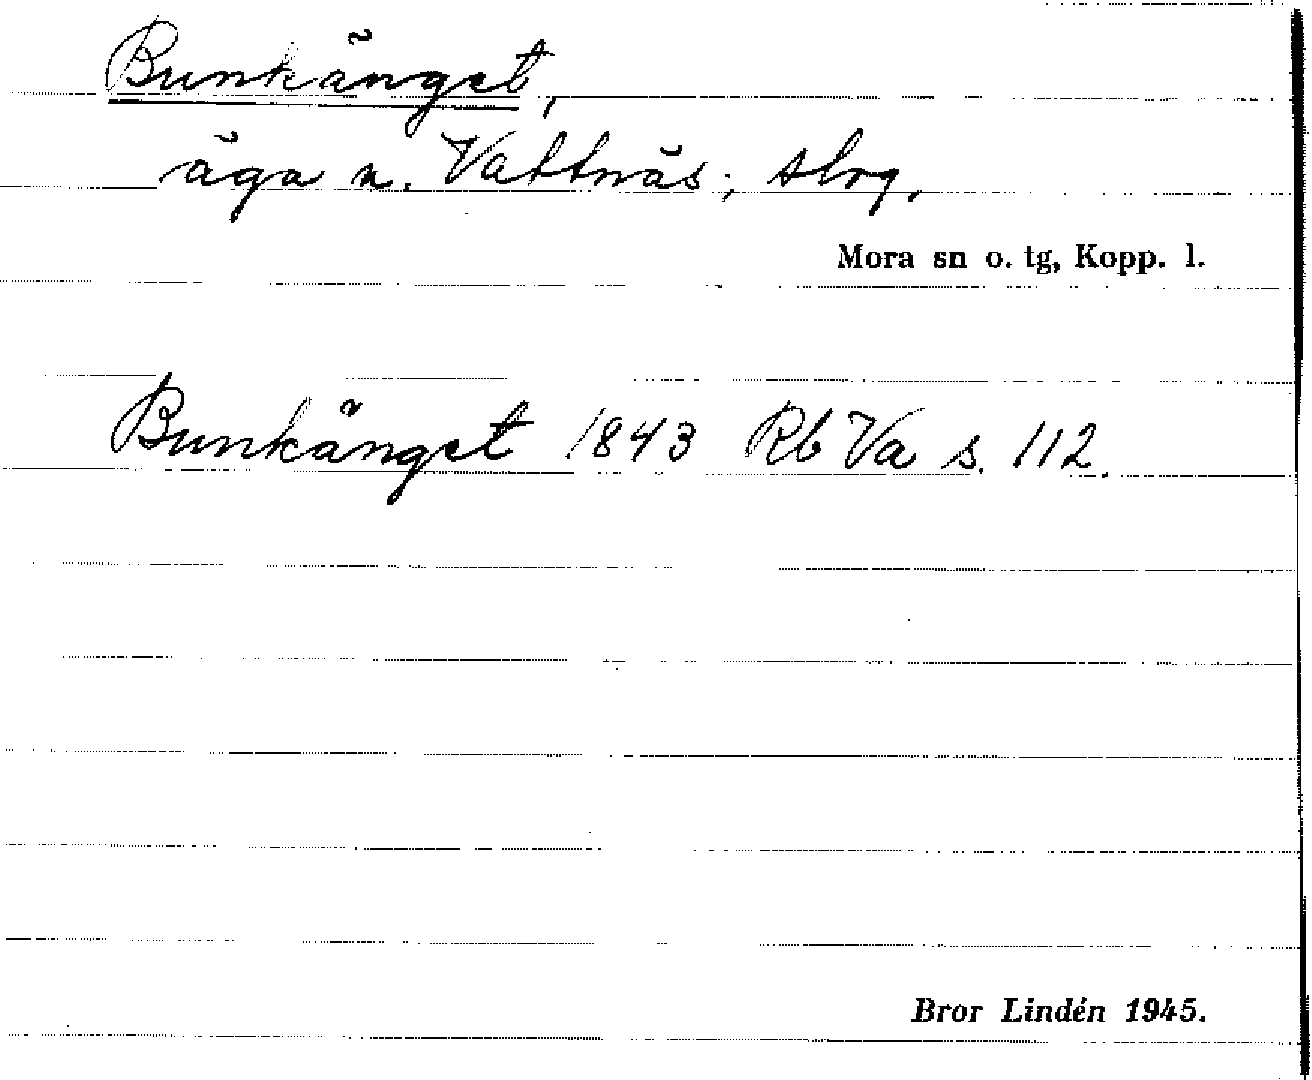 Bunkänget,
äga n. Vattnäs; slog.
Mora sn o. tg, Kopp. l.
Bunkänget 1843 Rb Va s. 112.
Bror Lindén 1945.